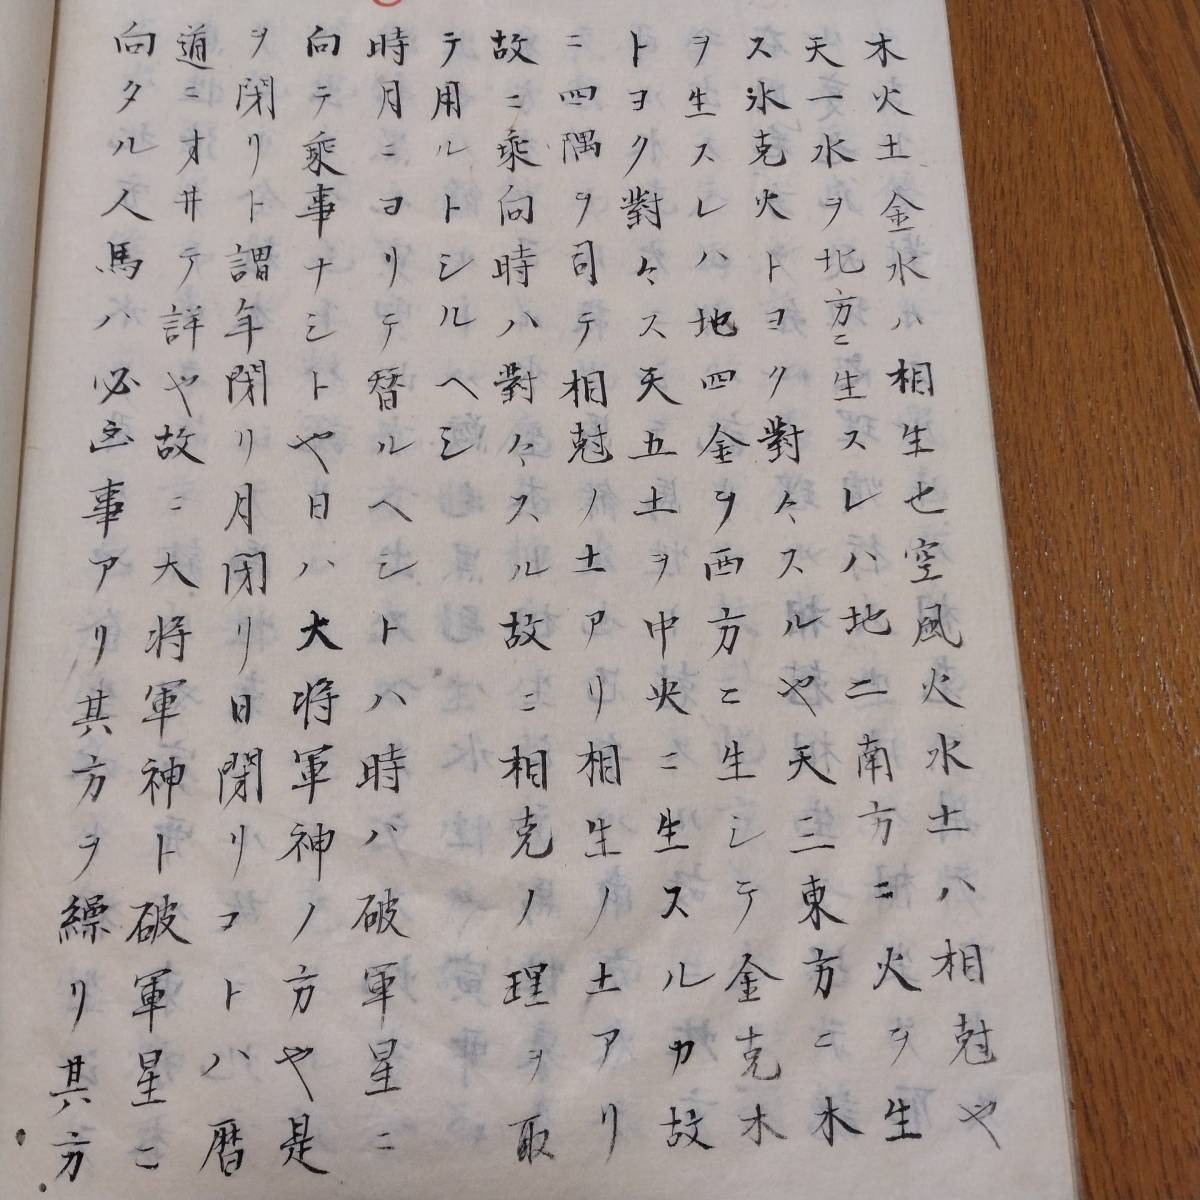 木火土金水ハ相生也空風火水土ハ相尅や
天一水ヲ北方ニ生スレハ地二南方ニ火ヲ生
ス氷克火トヨク對々スルや天三東方ニ木
ヲ生スレハ地四金ヲ西方ニ生シテ金克木
トヨク對々ス天五土ヲ中央ニ生スルカ故
ニ四隅ヲ司テ相尅ノ土アリ相生ノ土アリ
故ニ乘向時ハ對々スル故ニ相克ノ理ヲ取
テ用ルトシルヘシ
時月ニヨリテ替ルヘシトハ時ハ破軍星ニ
向テ乘事ナシトや日ハ大将軍神ノ方や是
ヲ閉リト謂年閉リ月閉リ日閉リコトハ暦
道ニオ井テ詳や故ニ大将軍神ト破軍星ニ
向タル人馬ハ必出事アリ其方ヲ繰リ其方